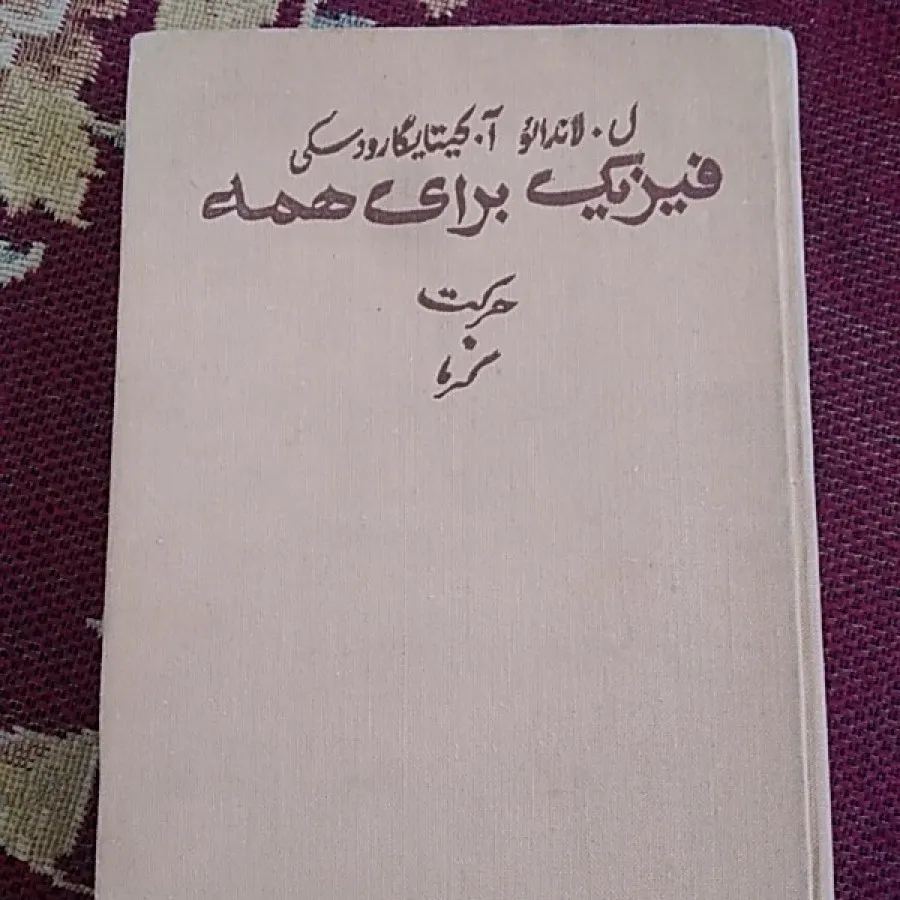 ل. لاندائو آ. کیتایگارودسکی
فیزیک برای همه
حرکت
گرما